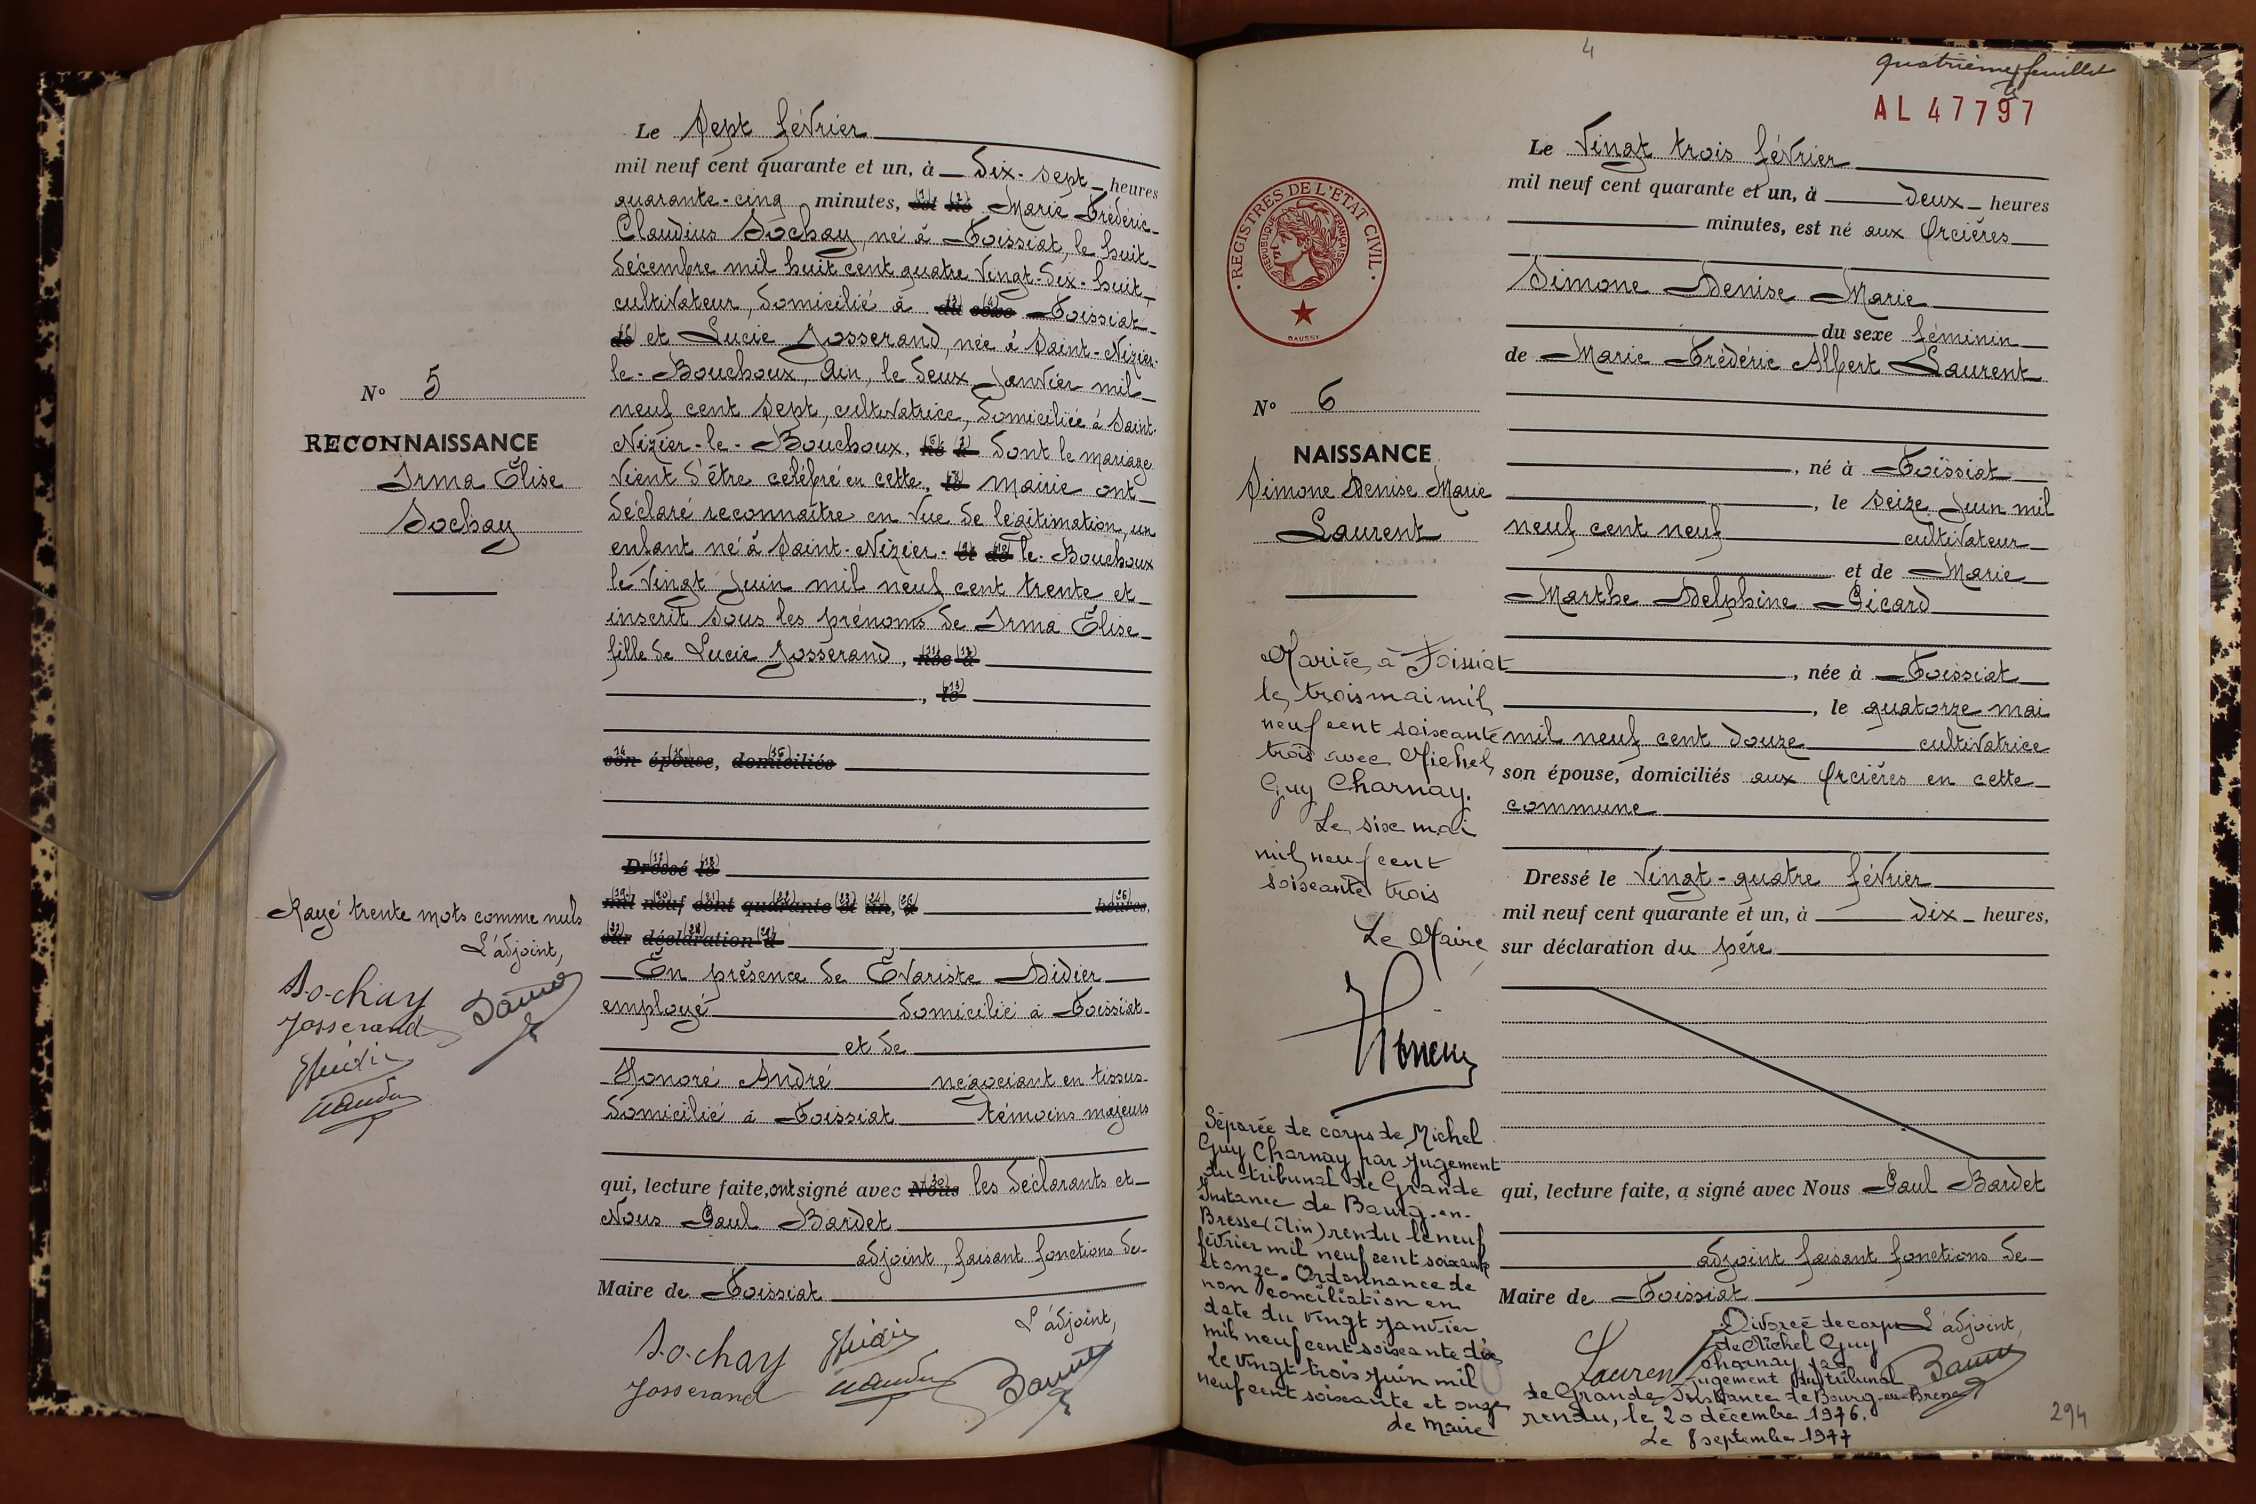 Le Sept février
mil neuf cent quarante et un, à dix-sept heures
quarante-cinq minutes, est né Marie Frédéric
Claudius Sochay, né à Foissiat, le huit
décembre mil huit cent quatre vingt-dix-huit,
cultivateur, domicilié à du sexe Foissiat
de et Lucie Josserand, née à Saint-Nizier-
le-Bouchoux, Ain, le deux Janvier mil
neuf cent sept, cultivatrice, domiciliée à Saint-
Nizier-le-Bouchoux, né à dont le mariage
vient d'être célébré en cette, le mairie ont
déclaré reconnaître en vue de légitimation, un
enfant né à Saint-Nizier- et de le-Bouchoux
le vingt Juin mil neuf cent trente et
inscrit sous les prénoms de Irma Élise
fille de Lucie Josserand, née à
, le
son épouse, domiciliés
Dressé le
mil neuf cent quarante et un, à heures,
sur déclaration d
En présence de Évariste Didier
employé domicilié à Foissiat
et de
Honoré André négociant en tissus
domicilié à Foissiat témoins majeurs
qui, lecture faite, ont signé avec Nous les déclarants et
Nous Paul Bardet
adjoint, faisant fonctions de
Maire de Foissiat
L'adjoint,
Sochay
Josserand
N° 5
RECONNAISSANCE
Irma Élise
Sochay
Rayé trente mots comme nuls
L'adjoint,
Sochay
Josserand
4
quatrième feuillet
AL 47797
REGISTRES DE L'ETAT CIVIL
REPUBLIQUE FRANÇAISE
DAUSSY
Le Vingt trois février
mil neuf cent quarante et un, à deux heures
minutes, est né aux Orcières
Simone Denise Marie
du sexe féminin
de Marie Frédéric Albert Laurent
, né à Foissiat
, le seize Juin mil
neuf cent neuf cultivateur
et de Marie
Marthe Delphine Picard
, née à Foissiat
, le quatorze mai
mil neuf cent douze cultivatrice
son épouse, domiciliés aux Orcières en cette
commune
Dressé le Vingt-quatre février
mil neuf cent quarante et un, à dix heures,
sur déclaration du père
qui, lecture faite, a signé avec Nous Paul Bardet
adjoint faisant fonctions de
Maire de Foissiat
L'adjoint,
Laurent
Divorcée de corps
de Michel Guy
Charnay par
jugement du tribunal
de Grande Instance de Bourg-en-Bresse
rendu, le 20 décembre 1976.
Le 8 septembre 1977
294
N° 6
NAISSANCE
Simone Denise Marie
Laurent
Mariée à Foissiat
le trois mai mil
neuf cent soixante
trois avec Michel
Guy Charnay.
Le six mai
mil neuf cent
soixante trois
Le Maire,
Séparée de corps de Michel
Guy Charnay par jugement
du tribunal de Grande
Instance de Bourg-en-
Bresse (Ain) rendu le neuf
février mil neuf cent soixante
et onze. Ordonnance de
non conciliation en
date du vingt janvier
mil neuf cent soixante dix
Le vingt trois juin mil
neuf cent soixante et onze
de Maire